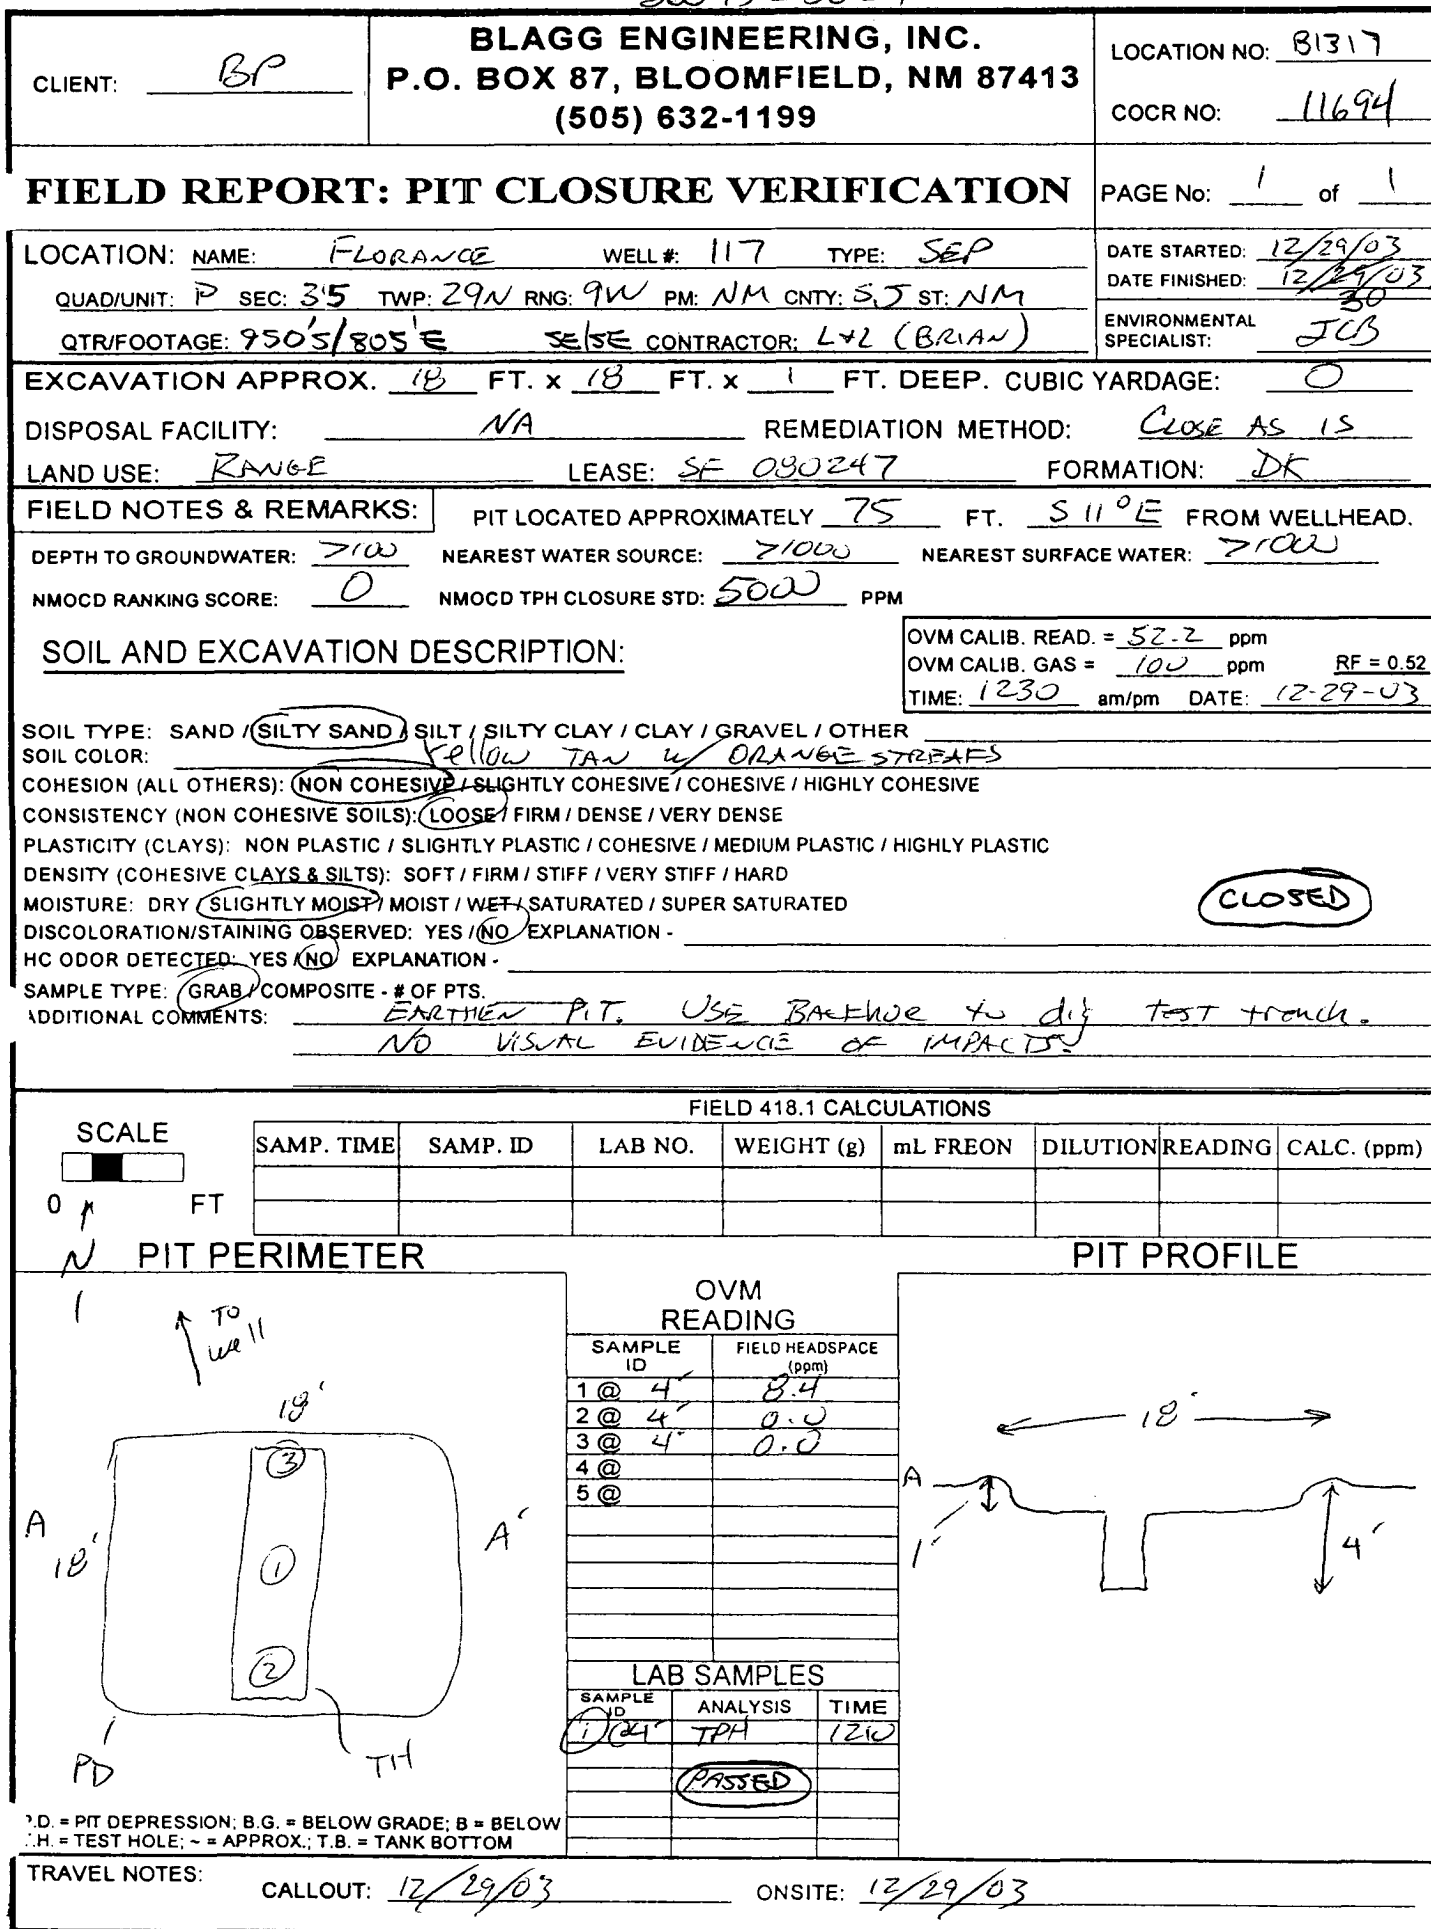 BLAGG ENGINEERING, INC.
P.O. BOX 87, BLOOMFIELD, NM 87413
(505) 632-1199
CLIENT: BP
LOCATION NO: B1317
COCR NO: 11694
FIELD REPORT: PIT CLOSURE VERIFICATION
PAGE No: 1 of 1
LOCATION: NAME: FLORANCE WELL #: 117 TYPE: SEP
QUAD/UNIT: P SEC: 35 TWP: 29N RNG: 9W PM: NM CNTY: SJ ST: NM
QTR/FOOTAGE: 950'S/805'E SE/SE CONTRACTOR: L+L (BRIAN)
DATE STARTED: 12/29/03
DATE FINISHED: 12/29/03
30
ENVIRONMENTAL
SPECIALIST: JCB
EXCAVATION APPROX. 18 FT. x 18 FT. x 1 FT. DEEP. CUBIC YARDAGE: 0
DISPOSAL FACILITY: NA REMEDIATION METHOD: CLOSE AS IS
LAND USE: RANGE LEASE: SF 080247 FORMATION: DK
FIELD NOTES & REMARKS: PIT LOCATED APPROXIMATELY 75 FT. S 11°E FROM WELLHEAD.
DEPTH TO GROUNDWATER: >100 NEAREST WATER SOURCE: >1000 NEAREST SURFACE WATER: >1000
NMOCD RANKING SCORE: 0 NMOCD TPH CLOSURE STD: 5000 PPM
SOIL AND EXCAVATION DESCRIPTION:
OVM CALIB. READ. = 52.2 ppm
OVM CALIB. GAS = 100 ppm RF = 0.52
TIME: 1230 am/pm DATE: 12-29-03
SOIL TYPE: SAND / SILTY SAND / SILT / SILTY CLAY / CLAY / GRAVEL / OTHER
SOIL COLOR: Yellow TAN w/ ORANGE STREAKS
COHESION (ALL OTHERS): NON COHESIVE / SLIGHTLY COHESIVE / COHESIVE / HIGHLY COHESIVE
CONSISTENCY (NON COHESIVE SOILS): LOOSE / FIRM / DENSE / VERY DENSE
PLASTICITY (CLAYS): NON PLASTIC / SLIGHTLY PLASTIC / COHESIVE / MEDIUM PLASTIC / HIGHLY PLASTIC
DENSITY (COHESIVE CLAYS & SILTS): SOFT / FIRM / STIFF / VERY STIFF / HARD
MOISTURE: DRY / SLIGHTLY MOIST / MOIST / WET / SATURATED / SUPER SATURATED
CLOSED
DISCOLORATION/STAINING OBSERVED: YES / NO EXPLANATION -
HC ODOR DETECTED: YES / NO EXPLANATION -
SAMPLE TYPE: GRAB / COMPOSITE - # OF PTS.
ADDITIONAL COMMENTS: EARTHEN PIT. USE BACKHOE to dig test trench.
NO VISUAL EVIDENCE OF IMPACTS.
FIELD 418.1 CALCULATIONS
SCALE
0 FT
SAMP. TIME SAMP. ID LAB NO. WEIGHT (g) mL FREON DILUTION READING CALC. (ppm)
N PIT PERIMETER
PIT PROFILE
TO
well
18'
3
A
18'
1
A'
2
PD
TH
OVM
READING
SAMPLE
ID
FIELD HEADSPACE
(ppm)
1 @ 4' 8.4
2 @ 4' 0.0
3 @ 4' 0.0
4 @
5 @
LAB SAMPLES
SAMPLE
ID
ANALYSIS TIME
1 @4' TPH 1210
PASSED
18'
A
1'
4'
P.D. = PIT DEPRESSION; B.G. = BELOW GRADE; B = BELOW
T.H. = TEST HOLE; ~ = APPROX.; T.B. = TANK BOTTOM
TRAVEL NOTES:
CALLOUT: 12/29/03 ONSITE: 12/29/03